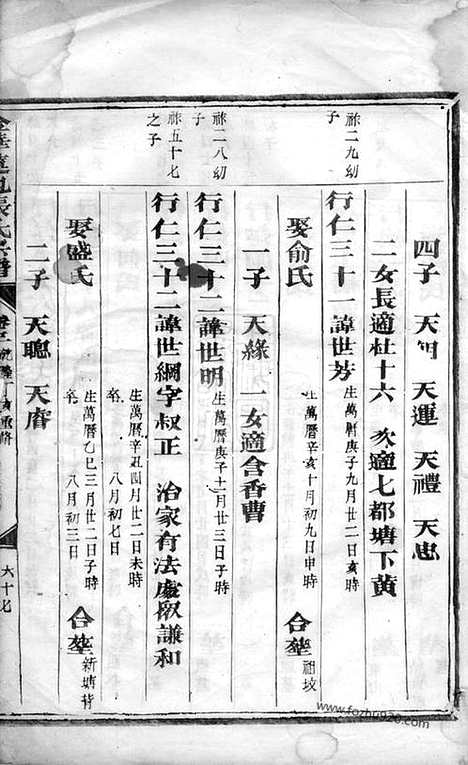 四子 天明 天運 天禮 天忠
二女長適杜十六 次適七都塘下黄
祢二九幼子
行仁三十一諱世芳 生萬曆庚子九月廿二日亥時
娶俞氏 生萬曆辛亥十月初九日申時 合塟祖坟
一子 天緣 一女適含香曹
祢二八幼子
行仁三十二諱世明 生萬曆庚子十二月廿三日子時
祢五十七之子
行仁三十二諱世綱字叔正 治家有法處衆謙和
生萬曆辛丑四月廿二日未時
卒 八月初七日
娶盛氏 生萬曆乙巳三月廿二日子時
卒 八月初三日 合塟新塘背
二子 天聰 天睿
張氏宗譜
重修
六十七
www.fozhu920.com